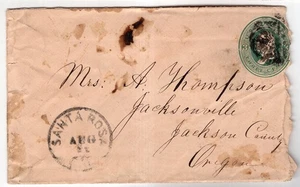 Mrs. A. Thompson
Jacksonville
Jackson County
Oregon
SANTA ROSA
AUG